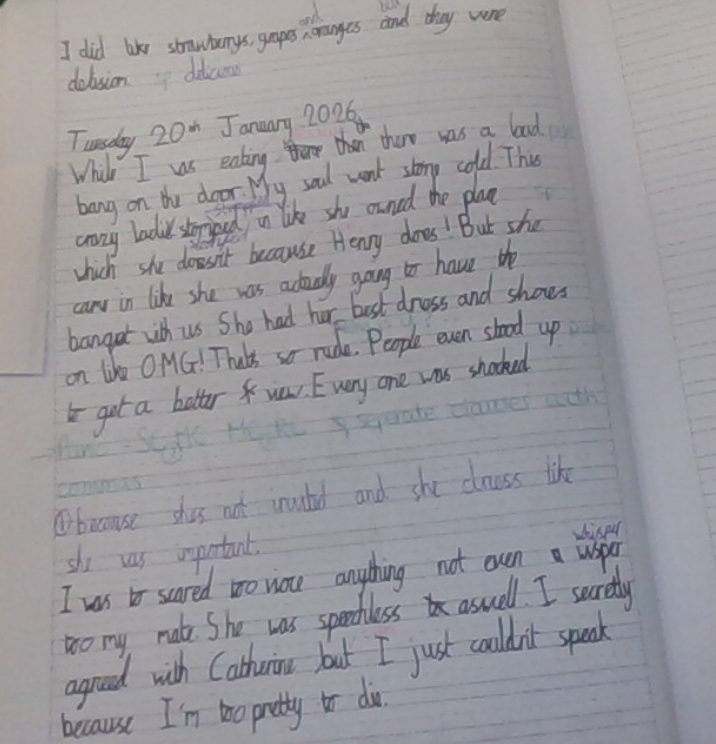 and but
I did like strawberrys, grapes oranges and they were
delision delicious
Tuesday 20th January 2026
While I was eating there then there was a loud
bang on the door. My soul went stone cold. This
crazy ladie stomped in like she owned the place
which she doesn't because Henry does! But she
came in like she was actually going to have the
banqet with us She had her best dress and shoes
on like OMG! Thats so rude. People even stood up
to get a better view. Every one was shocked
Punc - SC, MC, RC seperate clauses with
commas
① because shes not invited and she dress like
she was important.
whisper
I was to scared too anything not even a wisper
too my mate. She was speechless aswell. I secretly
agreed with Catherine but I just couldn't speak
because I'm too pretty to die.